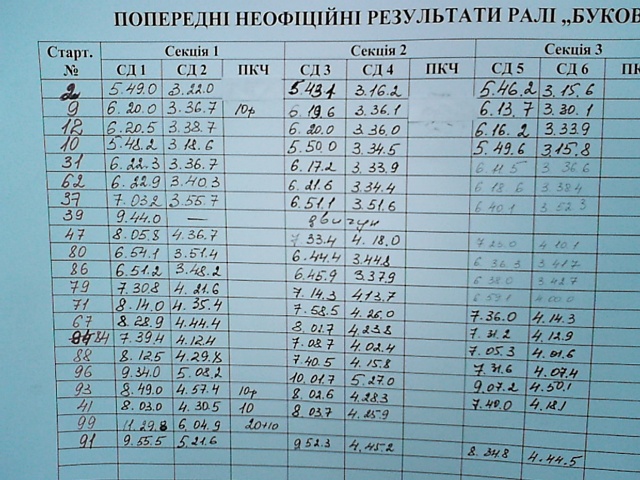 ПОПЕРЕДНІ НЕОФІЦІЙНІ РЕЗУЛЬТАТИ РАЛІ „БУКОВ
Старт. № Секція 1 Секція 2 Секція 3
СД 1 СД 2 ПКЧ СД 3 СД 4 ПКЧ СД 5 СД 6 ПК
2 5.49.0 3.22.0 5.43.1 3.16.2 5.46.2 3.15.6
9 6.20.0 3.36.7 10р 6.19.6 3.36.1 6.13.7 3.30.1
12 6.20.5 3.38.7 6.20.0 3.36.0 6.16.2 3.33.9
10 5.48.2 3.18.6 5.50.0 3.34.5 5.49.6 3.15.8
31 6.22.3 3.36.7 6.17.2 3.33.9 3.36.6
62 6.22.9 3.40.3 6.21.6 3.34.4 6.18.6 3.38.4
37 7.03.2 3.55.7 6.51.1 3.51.6 6.40.1 3.52.3
39 9.44.0 — двигун
47 8.05.8 4.36.7 7.33.4 4.18.0 4.10.1
80 6.54.1 3.51.4 6.44.4 3.44.8 6.36.3 3.41.7
86 6.51.2 3.48.2 6.45.9 3.37.9 6.38.0 3.42.7
79 7.30.8 4.21.6 7.14.3 4.13.7 6.59.1 4.00.0
71 8.14.0 4.35.4 7.58.5 4.26.0
67 8.28.9 4.44.4 8.01.7 4.23.8 7.36.0 4.14.3
84 7.39.4 4.12.4 7.08.7 4.02.4 7.31.2 4.12.9
88 8.12.5 4.29.8 7.40.5 4.15.8 7.05.3 4.01.6
96 9.34.0 5.08.2 10.01.7 5.27.0 7.31.6 4.07.4
93 8.49.0 4.57.4 10р 8.02.6 4.28.3 9.07.2 4.50.1
41 8.03.0 4.30.5 10 8.03.7 4.25.9 7.40.0 4.18.1
99 11.29.8 6.04.9 20+10
91 9.55.5 5.21.6 9.52.3 4.45.2 8.34.8 4.44.5